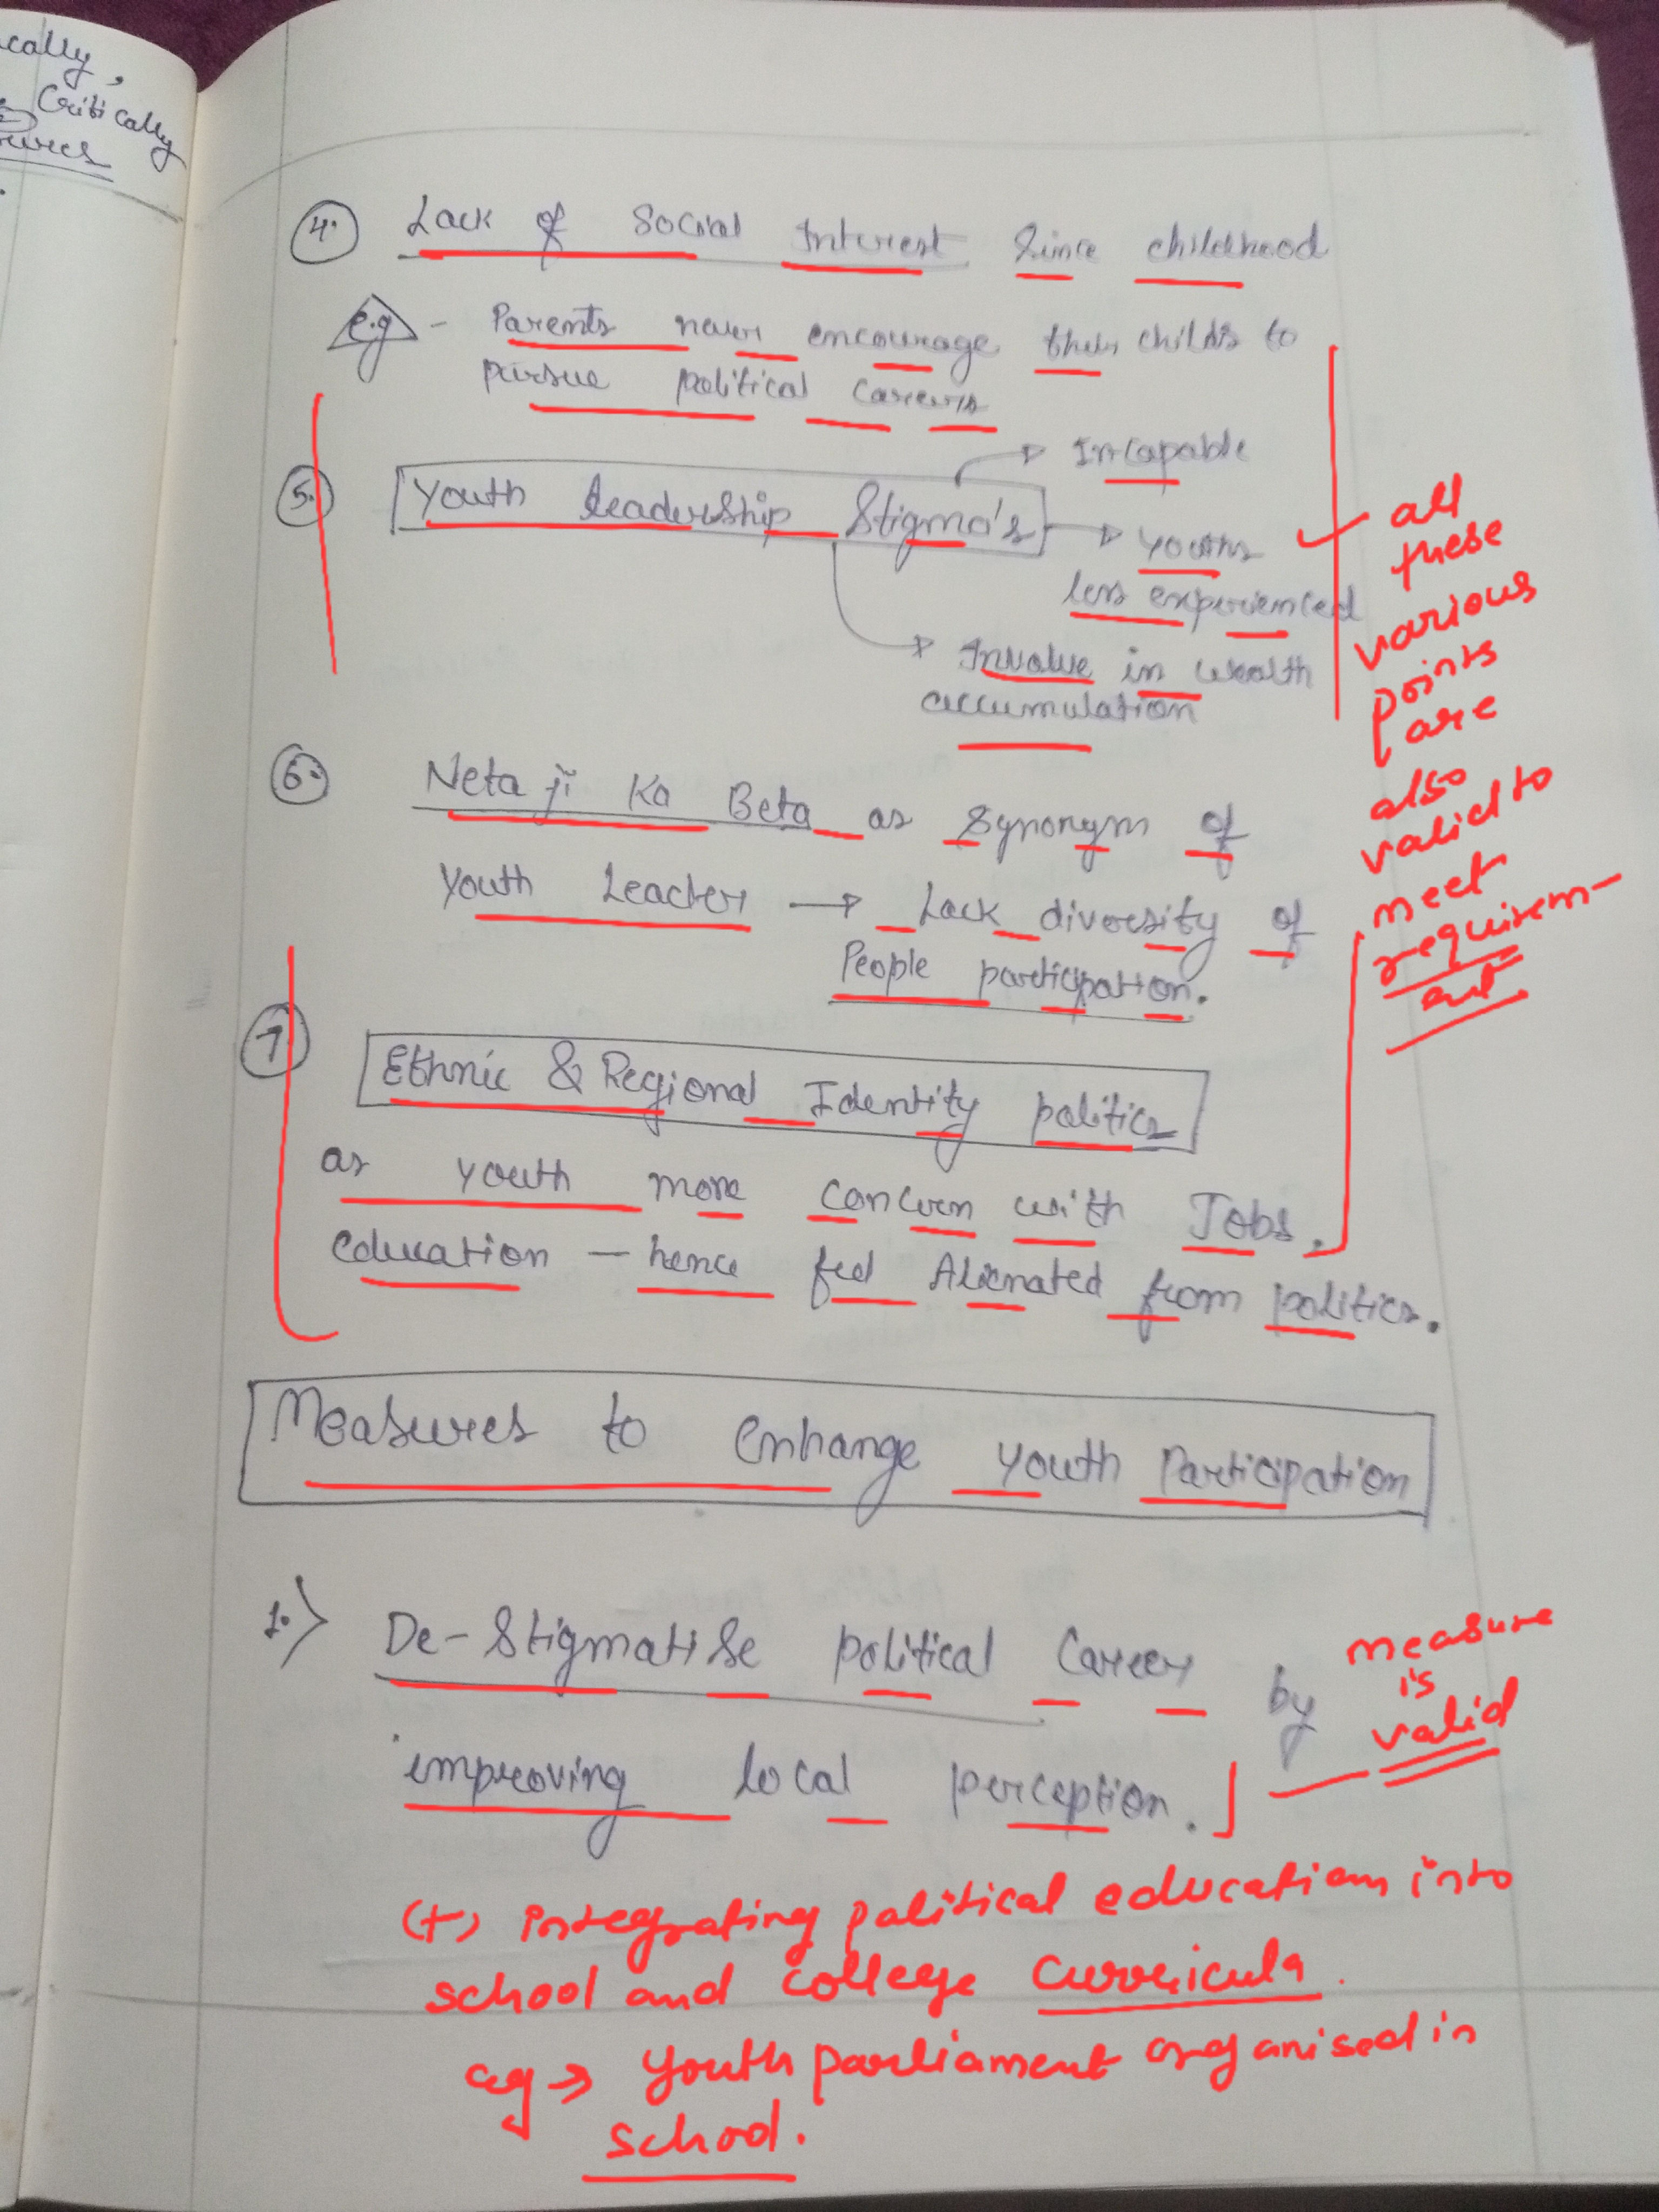 cally,
Critically
4. Lack of Social Interest Since childhood
e.g - Parents never encourage their childs to
pursue political careers
5. Youth leadership Stigma's
Incapable
Youths
less experienced
Involve in wealth
accumulation
all
these
various
points
are
also
valid to
meet
requirem-
ent
6. Neta ji Ka Beta as Synonym of
Youth Leader → Lack diversity of
People participation.
7. Ethnic & Regional Identity politics
as youth more concern with Jobs,
education - hence feel Alienated from politics.
Measures to enhange youth Participation
1.> De-Stigmatise political Career by
improving local perception.
measure
is
valid
(+) integrating political education into
school and college curricula.
eg → Youth parliament organised in
school.